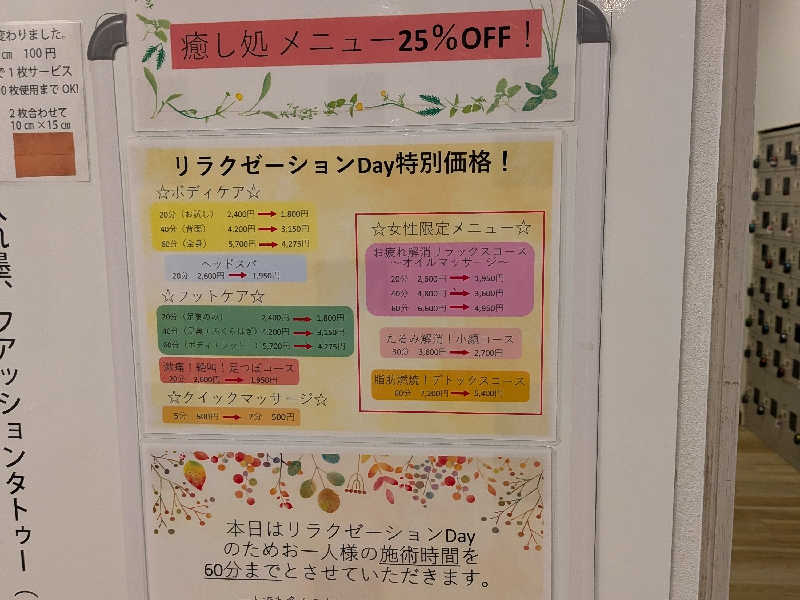 変わりました。
cm 100円
で1枚サービス
0枚使用までOK!
2枚合わせて
10cm×15cm
癒し処 メニュー25%OFF！
リラクゼーションDay特別価格！
☆ボディケア☆
20分（お試し） 2,400円→1,800円
40分（背面） 4,200円→3,150円
60分（全身） 5,700円→4,275円
ヘッドスパ
20分 2,600円→1,950円
☆フットケア☆
20分（足裏のみ） 2,400円→1,800円
40分（足裏+ふくらはぎ）4,200円→3,150円
60分（ボディ+フット）5,700円→4,275円
激痛！絶叫！足つぼコース
20分 2,600円→1,950円
☆クイックマッサージ☆
5分 500円→7分 500円
☆女性限定メニュー☆
お疲れ解消リラックスコース
～オイルマッサージ～
20分 2,600円→1,950円
40分 4,800円→3,600円
60分 6,600円→4,950円
たるみ解消！小顔コース
30分 3,600円→2,700円
脂肪燃焼！デトックスコース
60分 7,200円→5,400円
本日はリラクゼーションDay
のためお一人様の施術時間を
60分までとさせていただきます。
墨、ファッションタトゥー（